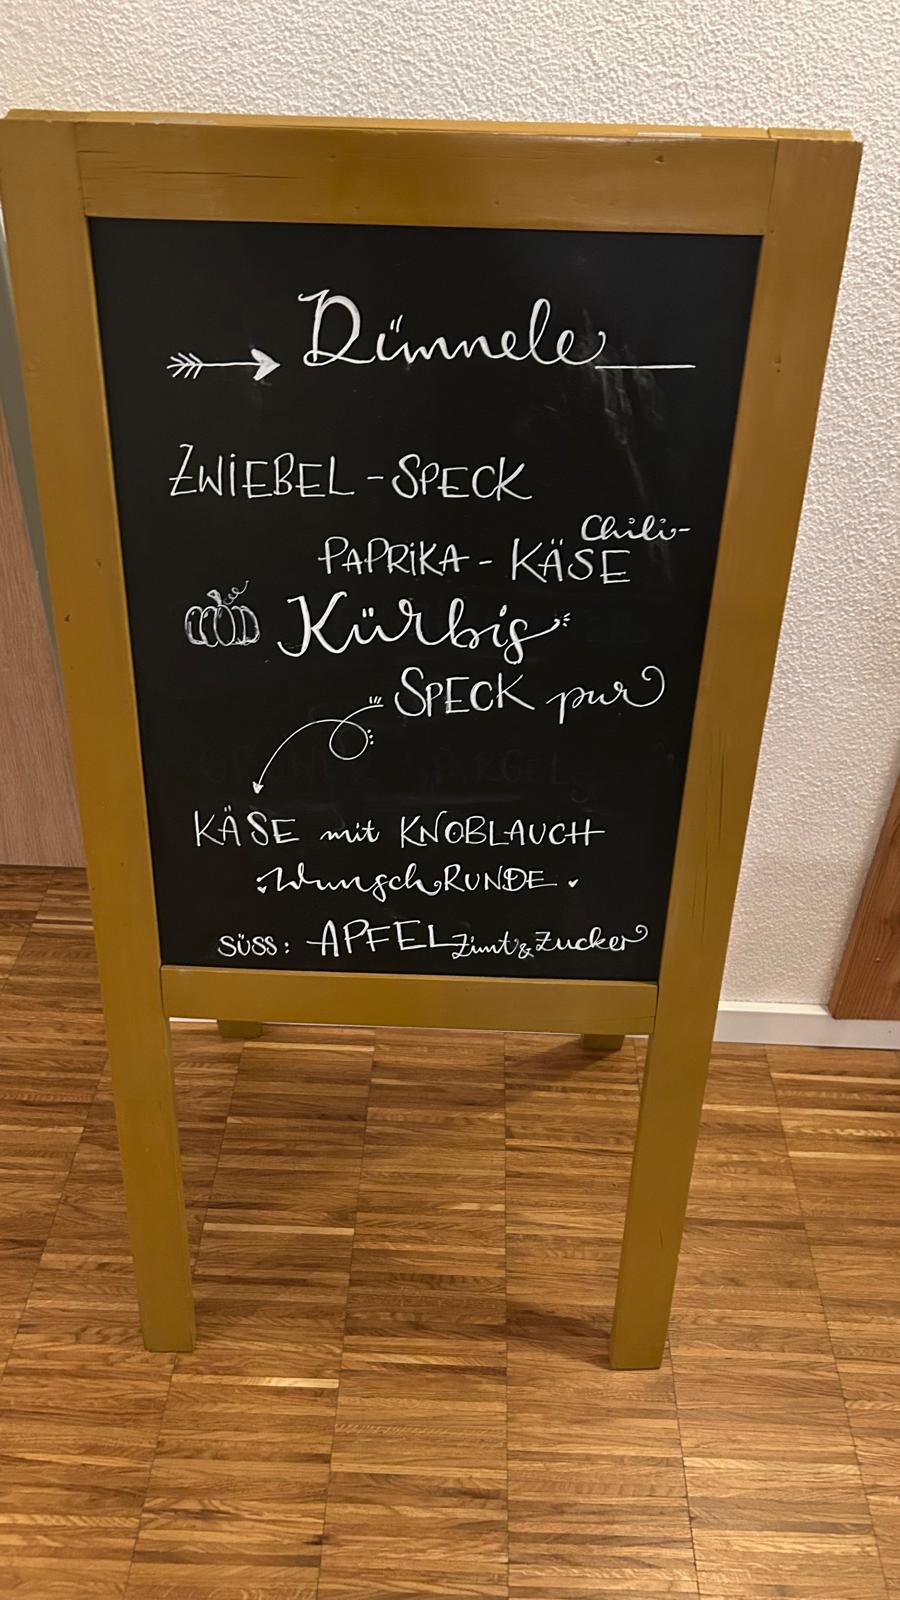 Dünnele
ZWIEBEL - SPECK
Chili-
PAPRIKA - KÄSE
Kürbis
SPECK pur
KÄSE mit KNOBLAUCH
WunschRUNDE
SÜSS: APFEL Zimt & Zucker